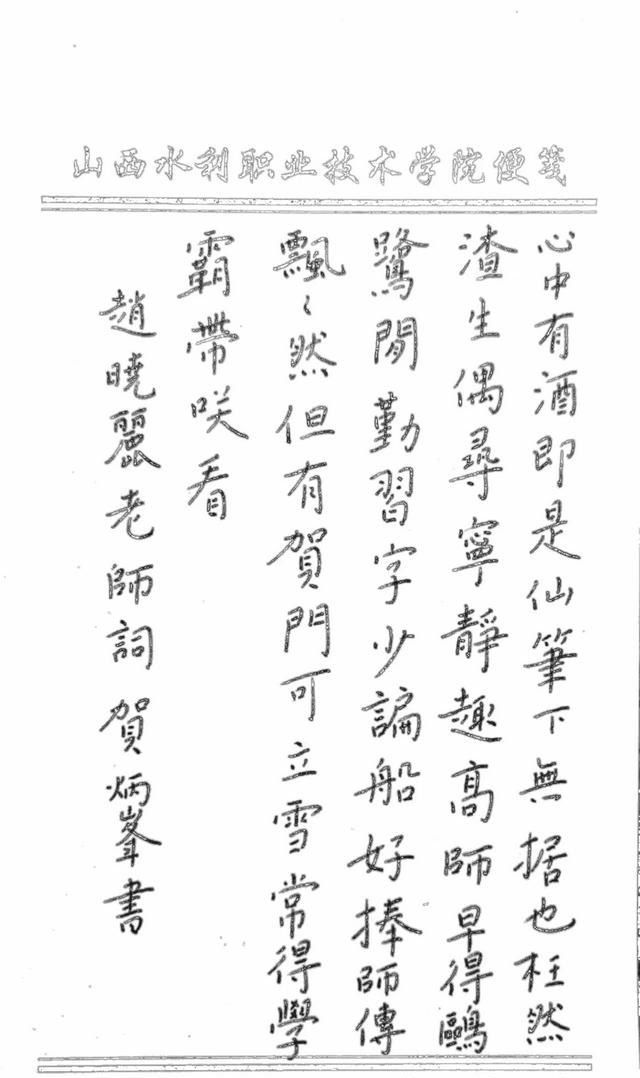 山西水利职业技术学院便笺
心中有酒即是仙筆下無据也枉然
渣生偶尋寧静趣高師早得鷗
鷺閒勤習字少諞船好捧師傳
飄々然但有賀門可立雪常得學
霸帶咲看
趙曉麗老師詞賀炳峯書